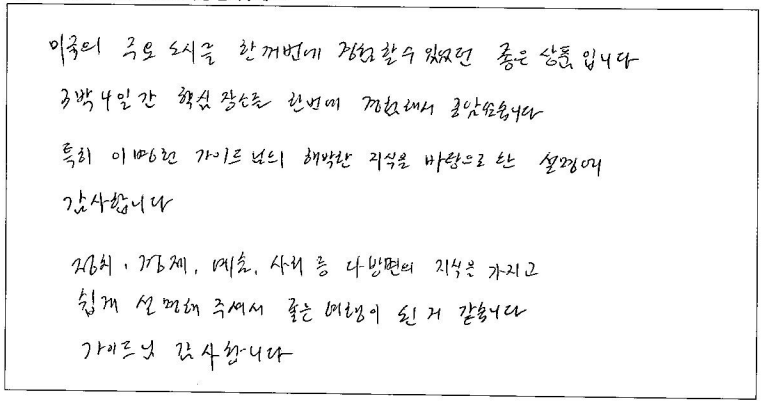 미국의 주요 도시를 한꺼번에 경험할 수 있었던 좋은 상품입니다
3박 4일간 핵심 장소를 한번에 경험해서 좋았었습니다
특히 이명헌 가이드님의 해박한 지식을 바탕으로 한 설명에
감사합니다
정치, 경제, 예술, 사회 등 다방면의 지식을 가지고
쉽게 설명해 주셔서 좋은 여행이 된 거 같습니다
가이드님 감사합니다